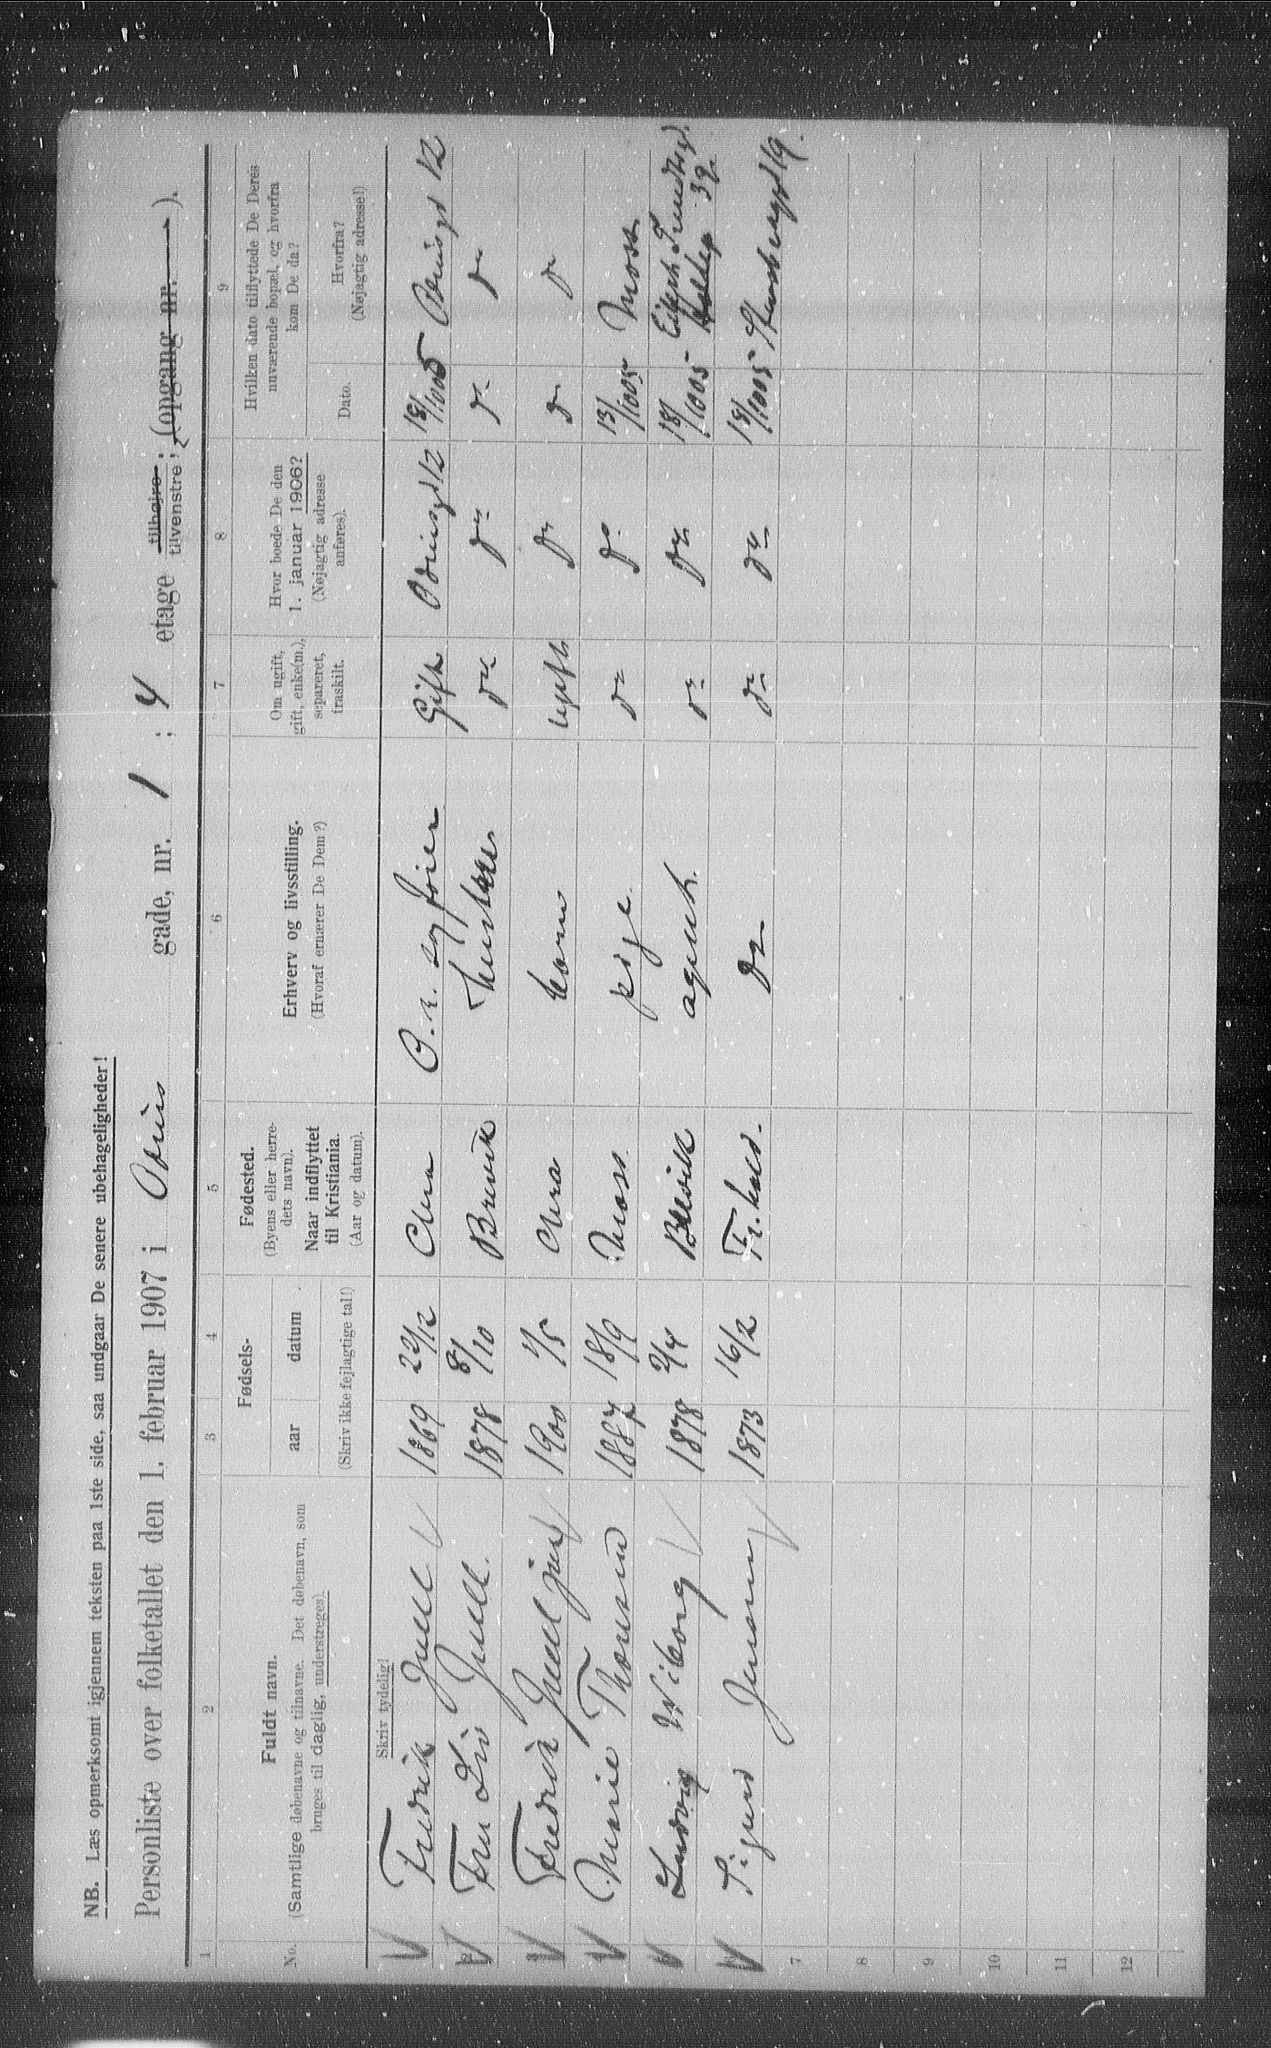 NB. Læs opmerksomt igjennem teksten paa 1ste side, saa undgaar De senere ubehageligheder!
Personliste over folketallet den 1. februar 1907 i Odins gade, nr. 1 ; 4 etage tilhøjre ; tilvenstre ; (opgang nr. ).
1 2 3 4 5 6 7 8 9
No. Fuldt navn. (Samtlige døbenavne og tilnavne. Det døbenavn, som bruges til daglig, understreges).
Fødsels- aar datum. (Skriv ikke fejlagtige tal!)
Fødested. (Byens eller herredets navn). Naar indflyttet til Kristiania. (Aar og datum).
Erhverv og livsstilling. (Hvoraf ernærer De Dem?)
Om ugift, gift, enke(m.), separeret, fraskilt.
Hvor boede De den 1. januar 1906? (Nøjagtig adresse anføres).
Hvilken dato tilflyttede De Deres nuværende bopæl, og hvorfra kom De da?
Dato. Hvorfra? (Nøjagtig adresse!)
Skriv tydelig!
Fredrik Juell 1869 22/12 Chra Gift Odinsgd 12 18/10 05 Odinsgd 12
2 Fru Liv Juell. 1878 8/10 Brevik do do do do
Fredrik Juell jun 1900 1/5 Chra barn ugift do do do
Marie Thorsen 1887 18/9 Moss pige do do 13/10 05 Moss
Ludvig Wiborg 1878 2/4 Brevik agent. do do 18/10 05 Eilert Sundtsgd 39
Sigurd Jensen 1873 16/2 Fr.hald. do do do 18/10 05
7
8
9
10
11
12